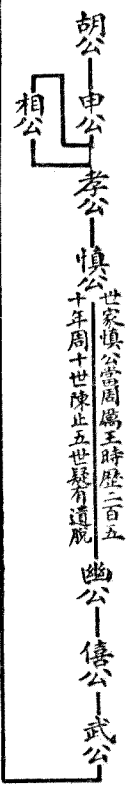 胡公
申公
相公
孝公
慎公
世家慎公當周厲王時歷二百五
十年周十世陳止五世疑有遺脫
幽公
僖公
武公